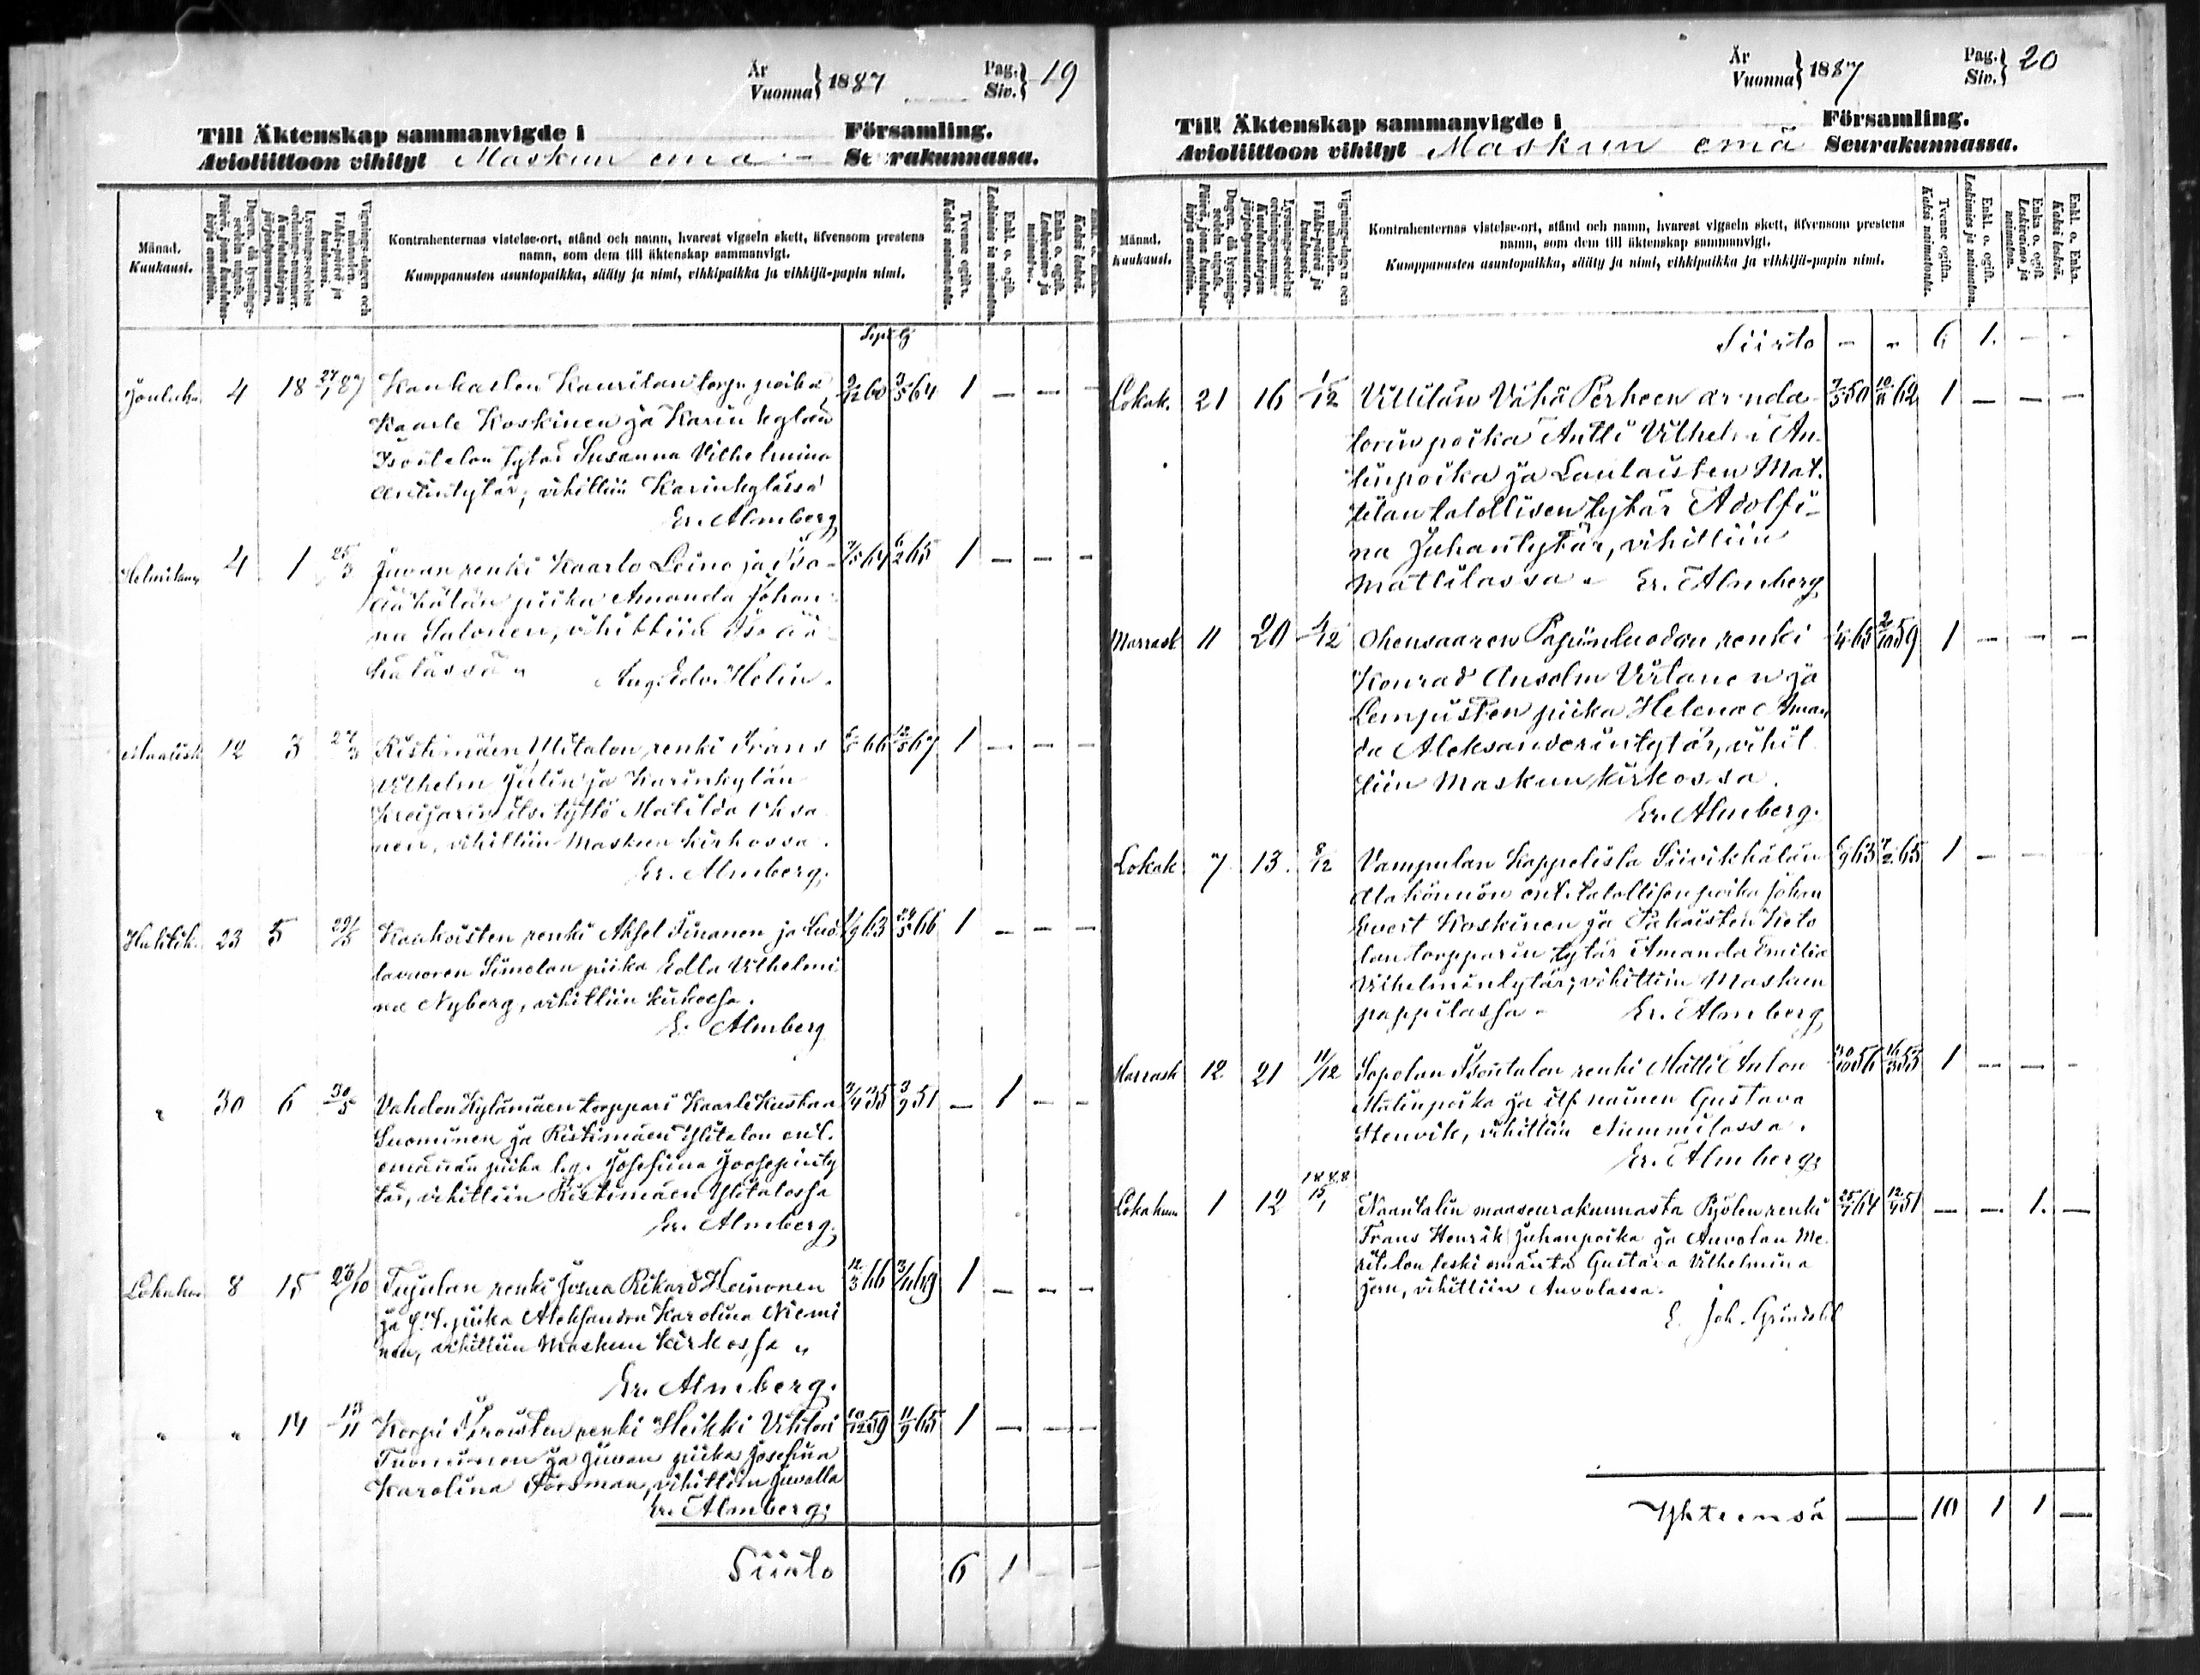 År
Vuonna } 1887
Pag.
Siv. } 19
Till Äktenskap sammanvigde i Församling.
Avioliittoon vihityt Maskun emä Seurakunnassa.
Månad.
Kuukausi.
Kontrahenternas vistelse-ort, stånd och namn, hvarest vigseln skett, äfvensom prestens
namn, som dem till äktenskap sammanvigt.
Kumppanusten asuntopaikka, sääty ja nimi, vihkipaikka ja vihkijä-papin nimi.
Tvenne ogifta.
Kaksi naimatonta.
Jouluku. 4 18 27/1 87 Kankaisten Kaurilan torp. poika 9/12 60 3/5 64 1 — — —
Kaarle Koskinen ja Karinkylän
Isontalon tytär Susanna Vilhelmina
Antintytär, vihittiin Karinkylässä
Er. Almberg
Helmikuu 4 1 25/3 Juvan renki Kaarlo Leino ja Iso- 7/5 64 6/2 65 1 — — —
Äähälän piika Amanda Johan-
na Salonen, vihittiin Iso Ää-
hälässä
Aug. Edv. Helin.
Maalisk 12 3 27/3 Ristimäen Ylitalon renki Frans 6/5 66 12/5 67 1 — — —
Vilhelm Julin ja Karinkylän
Kreijarin its. tyttö Matilda Oksa
nen, vihittiin Maskun kirkossa.
Er. Almberg.
Huhtik. 23 5 29/5 Kankaisten renki Aksel Iinanen ja 1/9 63 24/5 66 1 — — —
lavuoren Simolan piika Edla Vilhelmi
na Nyberg, vihittiin kirkossa.
E. Almberg
" 30 6 30/5 Vahdon Kylämäen torppari Kaarle Kustaa 3/4 35 3/9 51 — 1 — —
Suominen ja Ristimäen Ylitalon ent.
emännän piika l.q. Josefiina Joosepinty
tär, vihittiin Ristimäen Ylitalossa
Er. Almberg.
Lokakuu 8 15 23/10 renki Josua Rikard Heinonen 12/3 66 1 — — —
ja piika Aleksandra Karolina Niemi
nen, vihittiin Maskun kirkossa
Er. Almberg.
" " 14 13/11 Korpi renki Heikki Vihtori 10/12 59 11/9 65 1 — — —
Tuominen ja Juvan piika Josefina
Karolina Forsman, vihittiin Juvalla
Er. Almberg.
Siirto 6 1 — —
År
Vuonna } 1887
Pag.
Siv. } 20
Till Äktenskap sammanvigde i Församling.
Avioliittoon vihityt Maskun emä Seurakunnassa.
Månad.
Kuukausi.
Kontrahenternas vistelse-ort, stånd och namn, hvarest vigseln skett, äfvensom prestens
namn, som dem till äktenskap sammanvigt.
Kumppanusten asuntopaikka, sääty ja nimi, vihkipaikka ja vihkijä-papin nimi.
Tvenne ogifta.
Kaksi naimatonta.
Enkl. o. Enka.
Kaksi leskeä.
Siirto - " 6 1. — -
Lokak. 21 16 1/12 Villilän Vähä Perheen arenda- 7/5 50 62 1 — — —
torin poika Antti Vilhelm An-
tinpoika ja Laulaisten Mat-
tilan talollisen tytär Adolfi-
na Juhantytär, vihittiin
Mattilassa. Er. Almberg
Marrask 11 20 4/12 Ohensaaren Papinluodon renki 65 2/10 59 1 — — —
Konrad Anselm Virtanen ja
Lempisten piika Helena Aman
da Aleksanderintytär, vihit
tiin Maskun kirkossa.
Er. Almberg.
Lokak 7 13 8/12 Vampulan Kappelista Siivikkälän 6/9 63 7/2 65 1 — — —
Alakönnön ent. talollisen poika Johan
Evert Koskinen ja Pakaisten Keto
lan torpparin tytär Amanda Emilia
Vihelmintytär; vihittiin Maskun
pappilassa - Er. Almberg
Marrask 12 21 11/12 Sopolan Isontalon renki Matti Anton 30/10 56 16/3 55 1 — — —
Matinpoika ja its. nainen Gustava
Stenvik, vihittiin Niemmilässa.
Er. Almberg.
1888
Lokakuu 1 12 15/1 Naantalin maaseurakunnasta Pyölen renki 25/7 64 12/4 51 — — 1. —
Frans Henrik Juhanpoika ja Auvolan Me-
ritalon leski emäntä Gustava Vilhelmina
Jern, vihittiin Auvolassa.
E. Joh. Gründahl
Yhteensä — — 10 1 1 —